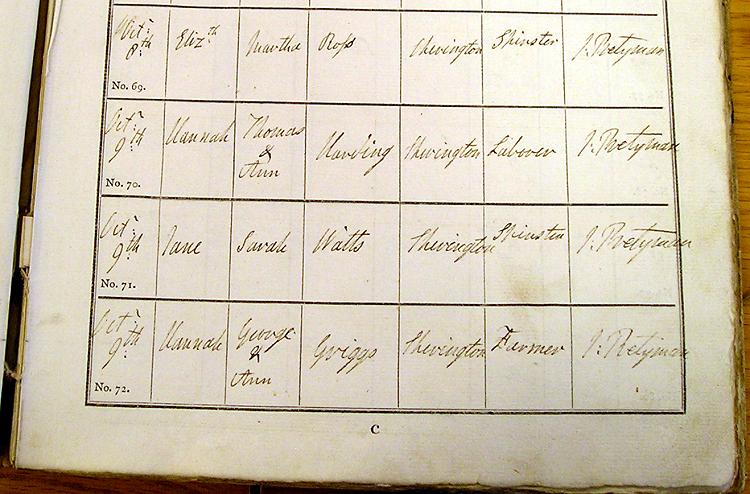 Octr 8th Elizth Martha Ross Chevington Spinster J. Pretyman
No. 69.
Octr 9th Hannah Thomas & Ann Harding Chevington Laborer J. Pretyman
No. 70.
Octr 9th Jane Sarah Watts Chevington Spinster J. Pretyman
No. 71.
Octr 9th Hannah George & Ann Griggs Chevington Farmer J. Pretyman
No. 72.
C